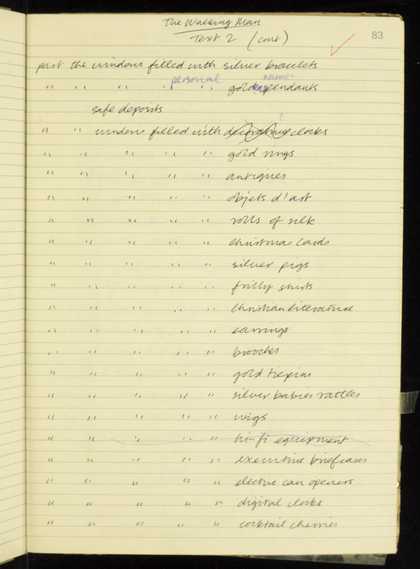 The Walking Man
Text 2 (cont)
83
past the windows filled with silver bracelets
personal name
" " " " " gold pendants
safe deposits
" " window filled with clocks
" " " " " gold rings
" " " " " antiques
" " " " " objets d'art
" " " " " rolls of silk
" " " " " christmas cards
" " " " " silver pigs
" " " " " frilly shirts
" " " " " christian literature
" " " " " earrings
" " " " " brooches
" " " " " gold
" " " " " silver babies rattles
" " " " " wigs
" " " " " hi-fi equipment
" " " " " executive briefcases
" " " " " electric can openers
" " " " " digital clocks
" " " " " cocktail cherries